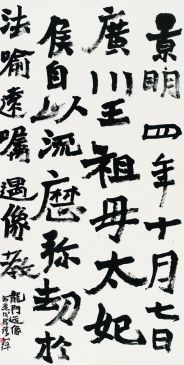 景明四年十月七日
廣川王祖母太妃
侯自以流歷弥劫於
法喻遠囑遇像教
龍門造像